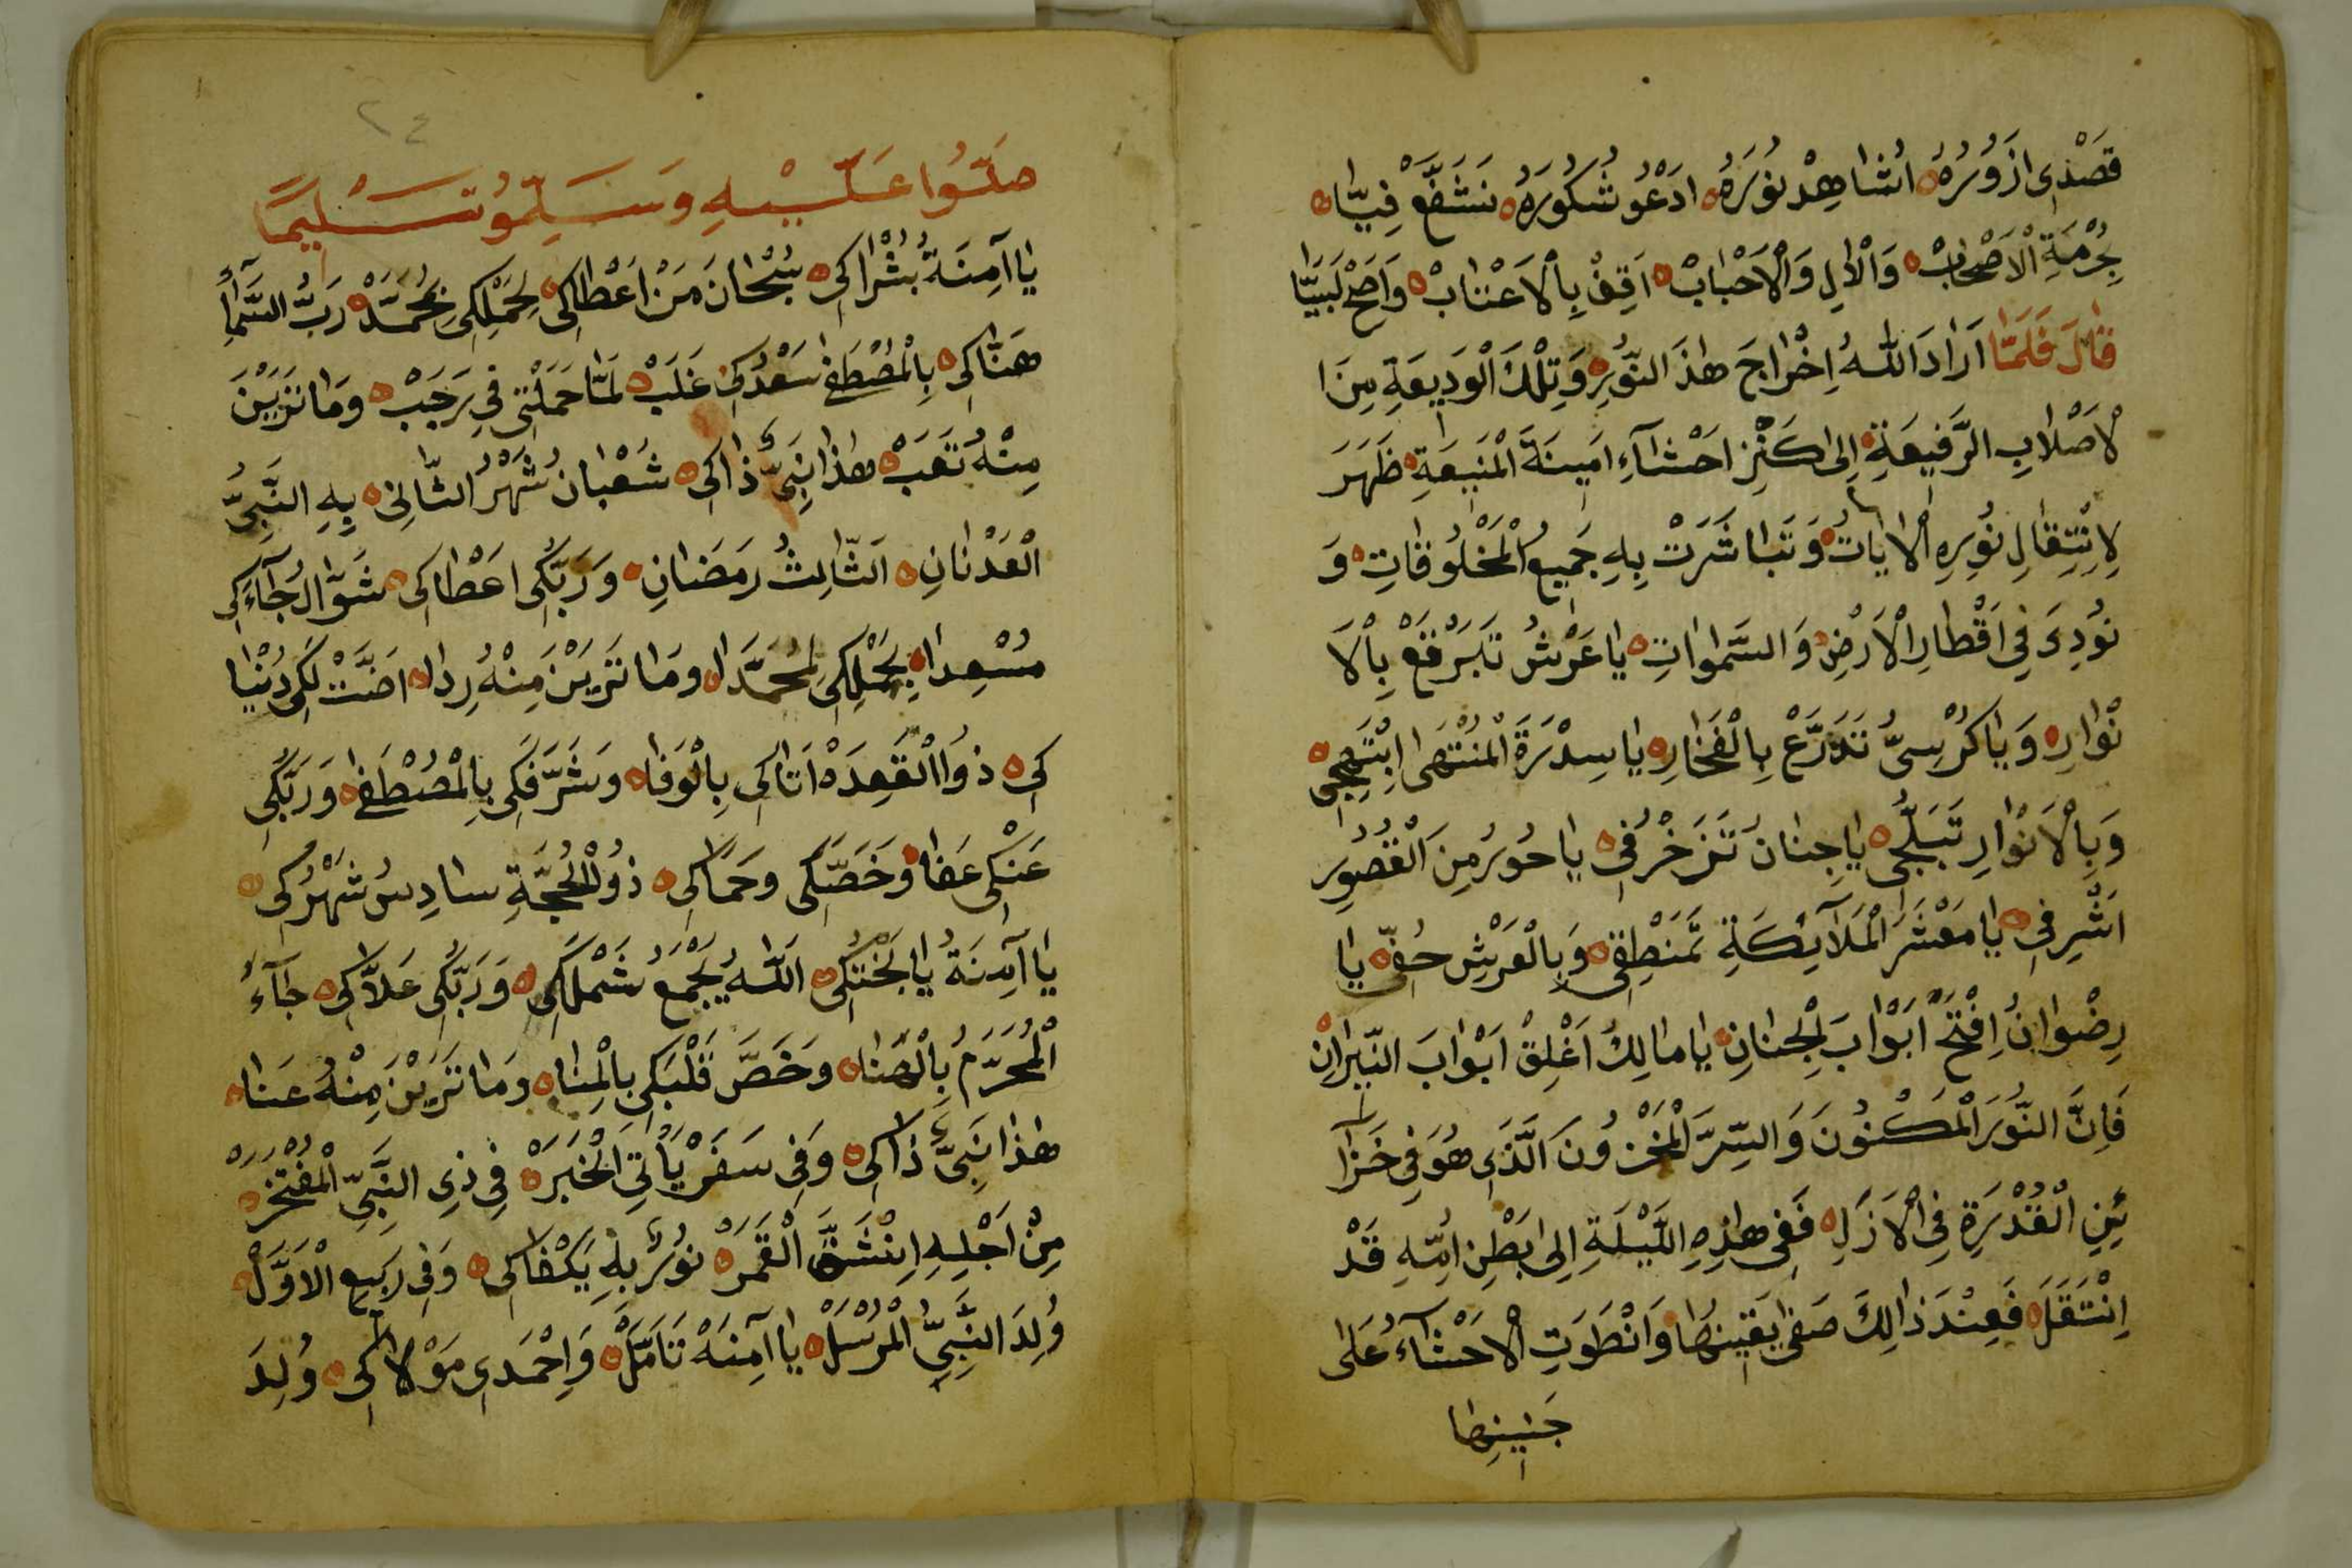 قَصْدِى ازَوُرُهْ اشَاهِدْ نوُرَهُ ادْعُو شَكُورَهُ نَتَشَفَّعْ فِيَّا
بِحُرْمَةِ الْاَصْحَابْ وَالْاٰلِ وَالْاَحْبَابْ اَقِفْ بِالْاَعْتَابْ وَاَصِحْ لَبَيَّا
قَالَ فَلَمَّا اَرَادَ اللّٰهُ اِخْرَاجَ هٰذَ النّوُرِ وَتِلْكَ الْوَدِيعَةِ مِنَ ا
لْاَصْلَابِ الرَّفِيعَةِ اِلىٰ كَنْزِ احَشَآءِ امَيِنَةَ الْمَنِيعَةِ ظَهَرَ
لِاِنْتِقَالِ نوُرِهِ الْاٰيَاتُ وَتَبَاشَرَتْ بِهِ جَمِيعُ الْمَخْلُوقَاتِ وَ
نوُدِىَ فِى اَقْطَارِ الْاَرْضِ وَالسَّمٰوَاتِ يَا عَرْشُ تَبَرْقَعْ بِالْاَ
نْوَارِ وَيَا كُرْسِىُّ تَدَرَّعْ بِالْفَخَارِ يَا سِدْرَةَ الْمُنْتَهَى ابْتَهِجِى
وَبِالْاَنْوَارِ تَبَلَّجِى يَا جِنَانُ تَزَخْرُفِى يَا حُورُ مِنَ الْقُصُورِ
اشَرِفِى يَا مَعْشَرَ الْمَلَآئِكَةِ تَمَنْطِقِى وَبِالْعَرْشِ حُفِّى يَا
رِضْوَانُ اِفْتَحْ اَبْوَابَ لْجِنَانِ يَا مَالِكُ اَغْلِقْ اَبْوَابَ النِّيرَانِ
فَاِنَّ النّوُرَ الْمَكْنُونَ وَالسِّرَّ الْمَخْزُونَ الَّذِى هُوَ فِى خَزَا
ئِنِ الْقُدْرَةِ فِى الْاَزَلِ فَفِى هٰذِهِ اللَّيْلَةِ اِلىٰ بَطْنِ امِّهِ قَدْ
اِنْتَقَلَ فَعِنْدَ ذَالِكَ صَفٰى يَقِينِهَا وَانْطَوَتِ الْاَحْشَآءُ عَلىٰ
جَنِينِهَا
٢٤
صَلّوُا عَلَيْهِ وَسَلِّمُو تَسْلِيمًا
يَا آمِنَةُ بُشْرَاكِى سُبْحَانَ مَنْ اَعْطَاكِى لِحَمْلِكِى بِمُحَمَّدْ رَبُّ السَّمَآءِ
هَنَّاكِى بِالْمُصْطَفٰى سَعْدُكِى غَلَبْ لَمَّا حَمَلْتِى فِى رَجَبْ وَمَا تَرَيْنَ
مِنْهُ تَعَبْ هٰذَا نَبِىٌّ ذَاكِى شَعْبَانُ شَهْرُ الثَّانِى بِهِ النَّبِىُّ
الْعَدْنَانِ اَلثَّالِثُ رَمَضَانِ وَرَبُّكِى اعَطَاكِى شَوَّالُ جَآءَكِى
مُسْعِدَا بِحَمْلِكِى لِمُحَمَّدَا وَمَا تَرَيْنَ مِنْهُ رِدَا اضَتْ لَكِى دُنْيَا
كِى ذُوا الْقَعِدَهْ اتَاكِى بِالْوَفَا وَشَرَّفَكِى بِالْمُصْطَفٰى وَرَبُّكِى
عَنْكِى عَفَا وَخَصَّكِى وَحَمَاكِى ذُوالْحُجَّةِ سَادِسُ شَهْرُكِى
يَا آمِنَةُ يَا لَبَخْتُكِى اَللّٰهُ يُجْمَعُ شَمْلَكِى وَرَبُّكِى عَلَّاكِى جَآءَ
الْمُحَرَّمُ بِالْهَنَا وَخَصَّ قَلْبَكِى بِالْمِنَا وَمَا تَرَيْنَ مِنْهُ عَنَا
هٰذَا نَبِىٌّ ذَاكِى وَفِى سَفَرْ يَأْتِى الْخَبَرْ فِى ذِى النَّبِىِّ الْمُفْتَخَرْ
مِنْ اَجْلِهِ اِنْشَقَّ الْقَمَرْ نوُرٌ بِهِ يَكْفَاكِى وَفِى رَبِيعِ الْاَوَّلْ
وُلِدَ النَّبِىُّ الْمُرْسَلْ يَا آمِنَهْ تَامَّلْ وَاِحْمَدِى مَوْلَاكِى وُلِدَ